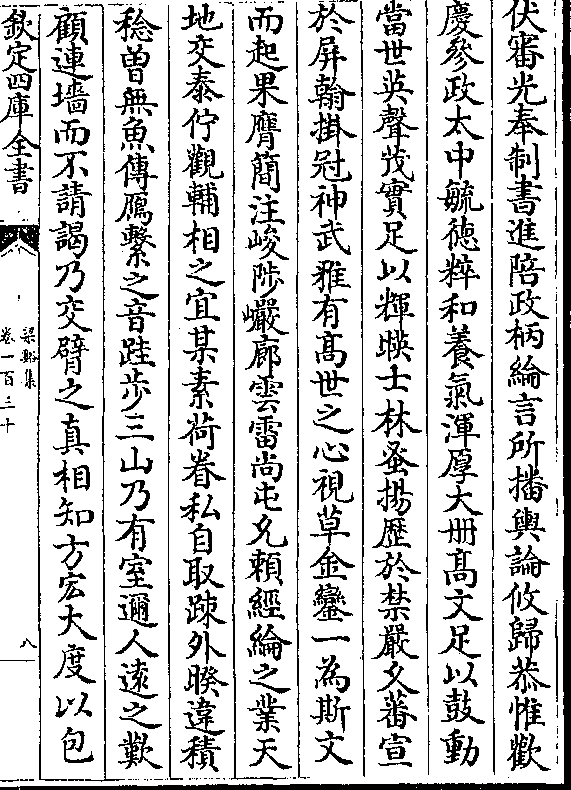 伏審光奉制書進陪政柄綸言所播輿論攸歸恭惟歡
慶參政太中毓徳粹和養氣渾厚大册髙文足以鼓動
當世英聲茂實足以輝暎士林蚤揚歴於禁嚴久蕃宣
於屏翰掛冠神武雅有髙世之心視草金鑾一為斯文
而起果膺簡注峻陟巖廊雲雷尚屯允頼經綸之業天
地交泰佇觀輔相之宜某素荷眷私自取疎外暌違積
稔曽無魚傳鴈繫之音跬歩三山乃有室邇人逺之歎
顧連墻而不請謁乃交臂之真相知方宏大度以包
欽定四庫全書
梁谿集
卷一百三十
八